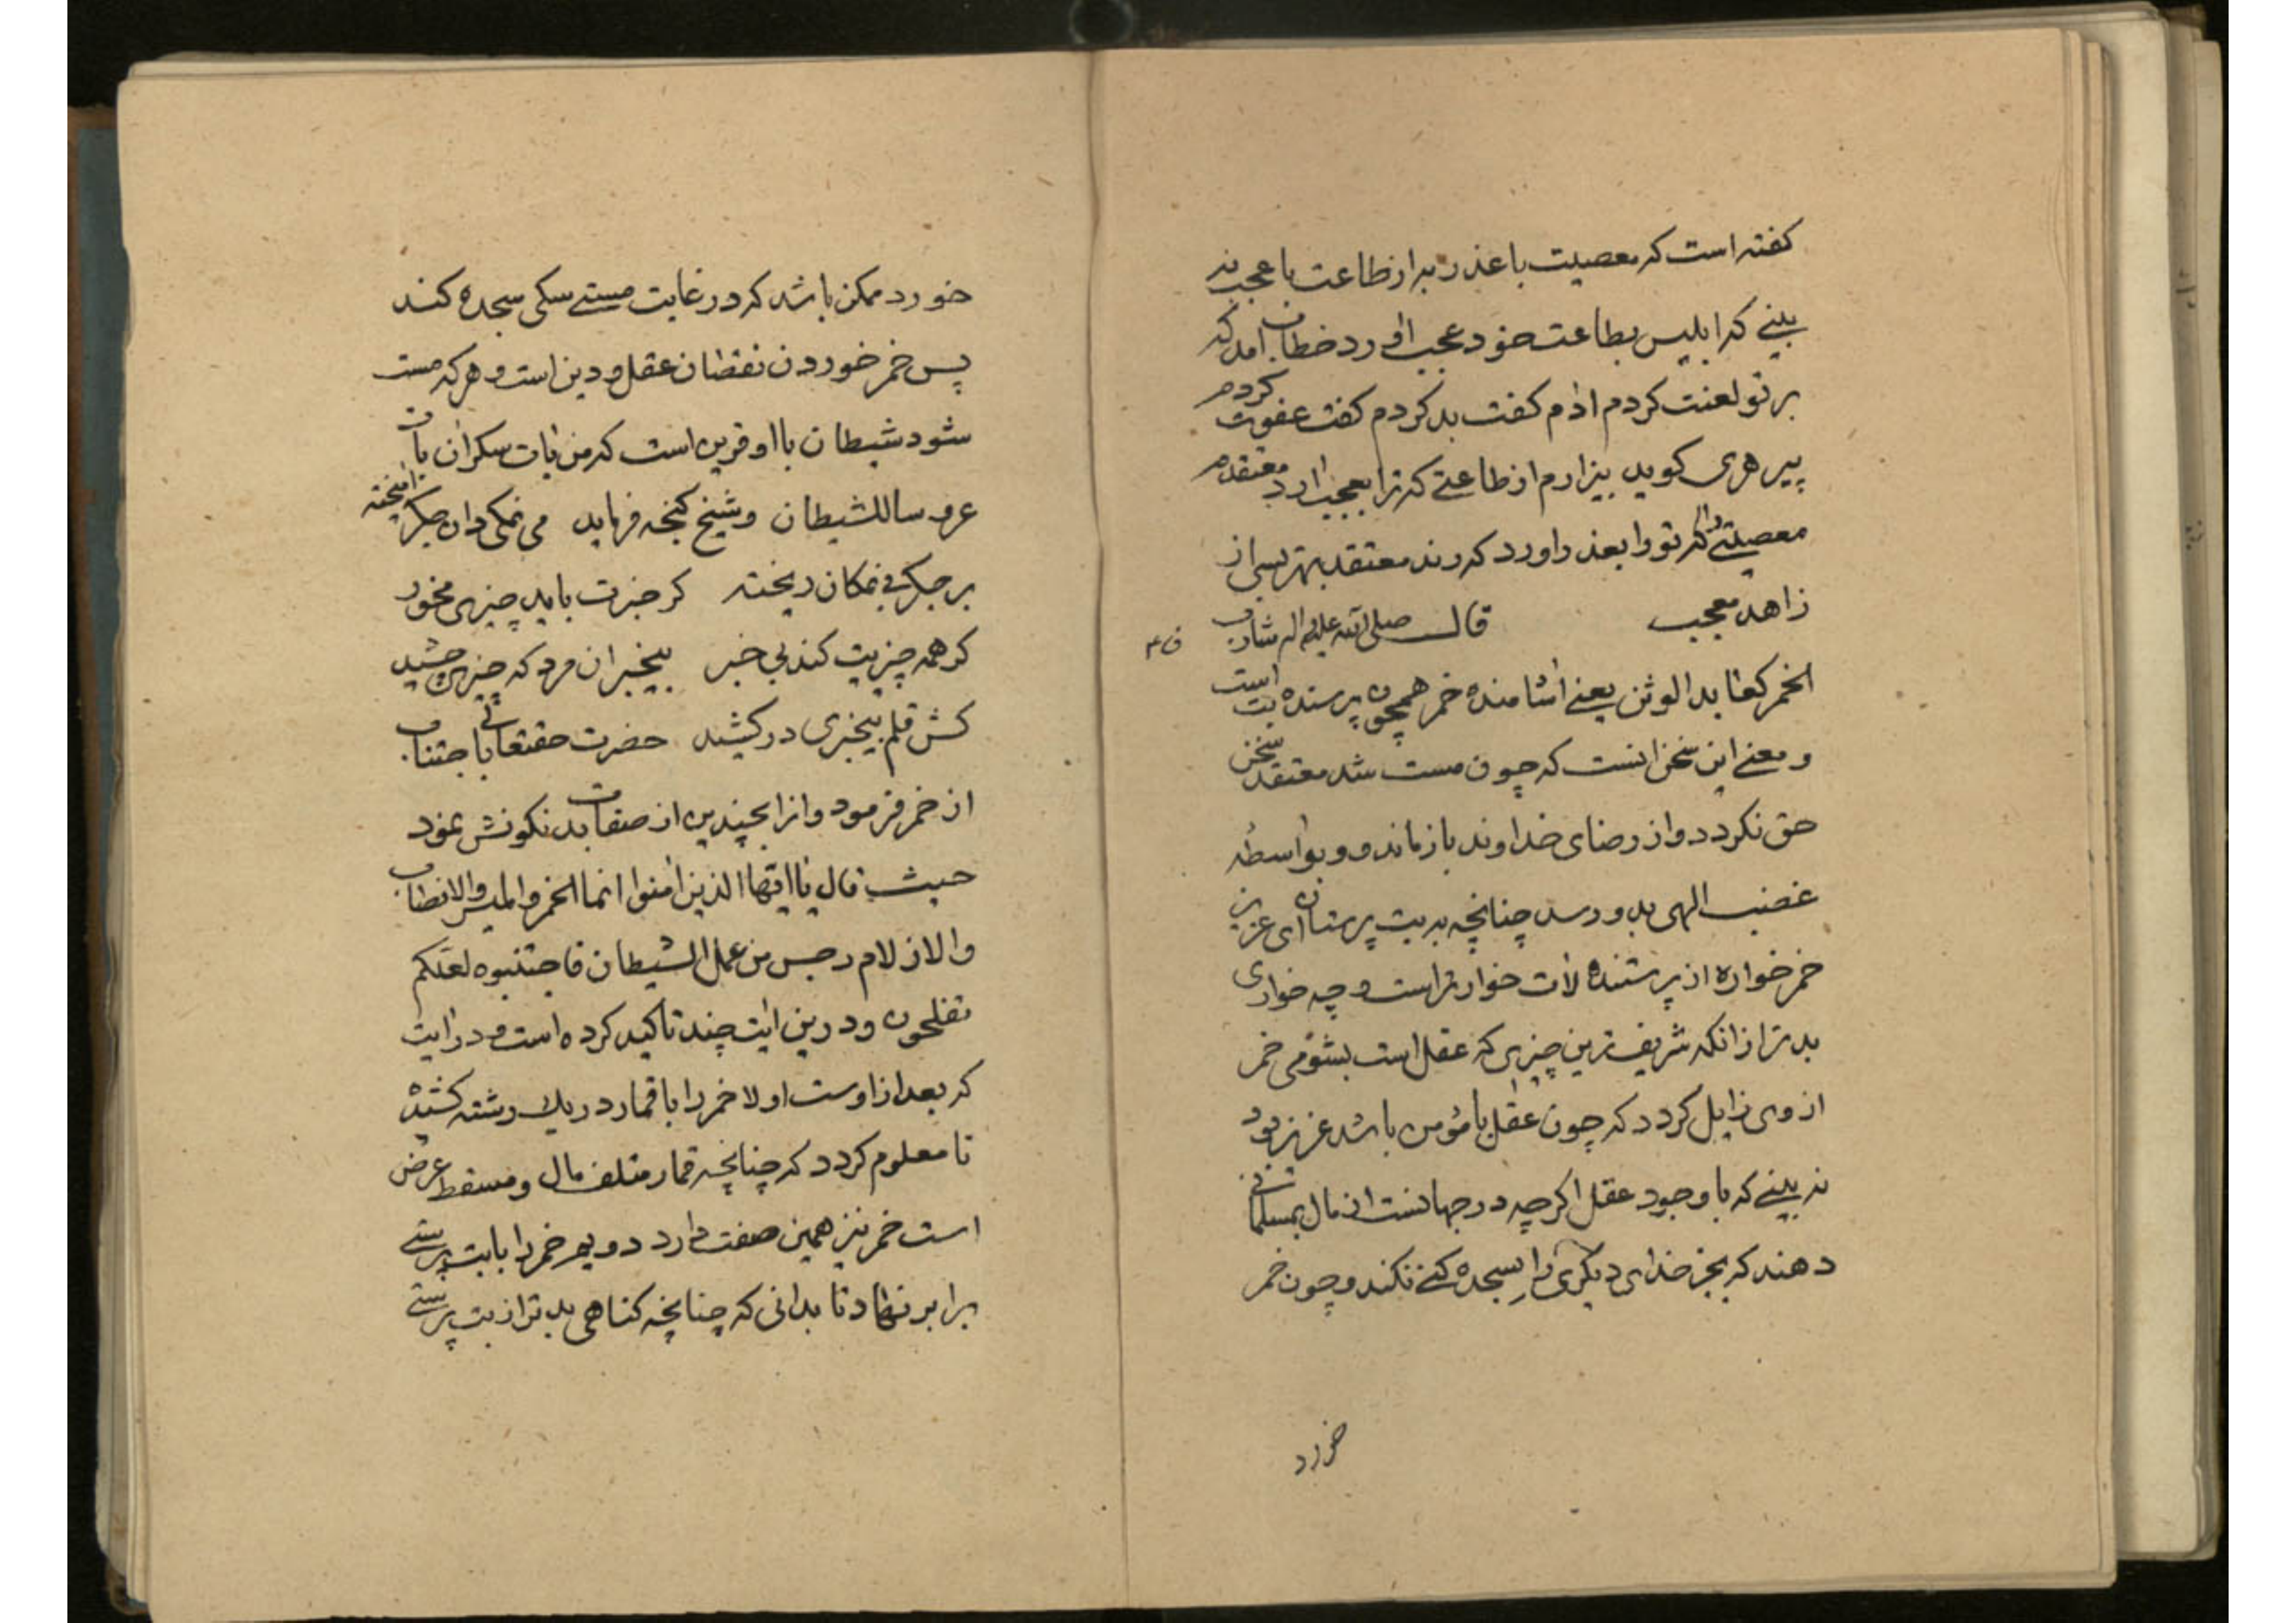 کفته است که معصیت با عذر به از طاعت با عجب نه
بینے که ابلیس بطاعت خود عجب اورد خطاب امد که
بر تو لعنت کردم ادم کفت بد کردم کفت عفوت کردم
پیر هری کوید بیزارم از طاعتے که ترا بعجب ارد معتقدم
معصیتے را که تو را بعذر اورد که رند معتقد بهتر بسی از
زاهد معجب قال صلی الله علیه و اله شارب
ف ۴
الخمر کعابد الوثن یعنے اشامنده خمر همچون پرسنده بت است
و معنے این سخن انست که چون مست شد معتقد سخن
حق نکردد و از رضای خداوند باز ماند و و بواسطه
غضب الهی بدو رسد چنانچه به بت پرستان ای عزیز
خمر خواره از پرستنده لات خوار تر است و چه خواری
بد تر از انکه شریف ترین چیزی که عقل است بشومی خمر
از وی زایل کردد که چون عقل با مؤمن باشد عزیز بود
نه بینے که با وجود عقل اکر چه در جهانست از مال بمسلمانے
دهند که بجز خدای دیکری را سجده کنے نکند و چون خمر
خورد
خورد ممکن باشد که در غایت مستے سکی سجده کند
پس خمر خوردن نقصان عقل و دین است و هر که مست
شود شیطان با او قرین است که من بات سکران بات
عروسا للشیطان و شیخ کنجه فرماید می نمکی دان جکر امیخته
بر جکر بی نمکان ریخته کر خبرت باید چیزی مخور
کر همه چیزیت کند بی خبر بیخبر ان مرد که چیزی چشید
کش قلم بیخبری در کشید حضرت حقتعالی باجتناب
از خمر فرمود و انرا بچندین از صفات بد نکوهش نمود
حیث قال یا ایها الذین امنوا انما الخمر و المیسر و الانصاب
والازلام رجس من عمل الشیطان فاجتنبوه لعلکم
تفلحون و درین ایت چند تاکید کرده است و در ایت
که بعد از اوست اولا خمر را با قمار در یك رشته کشیده
تا معلوم کردد که چنانچه قمار متلف مال و مسقط عرض
است خمر نیز همین صفت دارد دویم خمر را با بت پرستے
برابر نهاد تا بدانی که چنانچه کناهی بد تر از بت پرستے